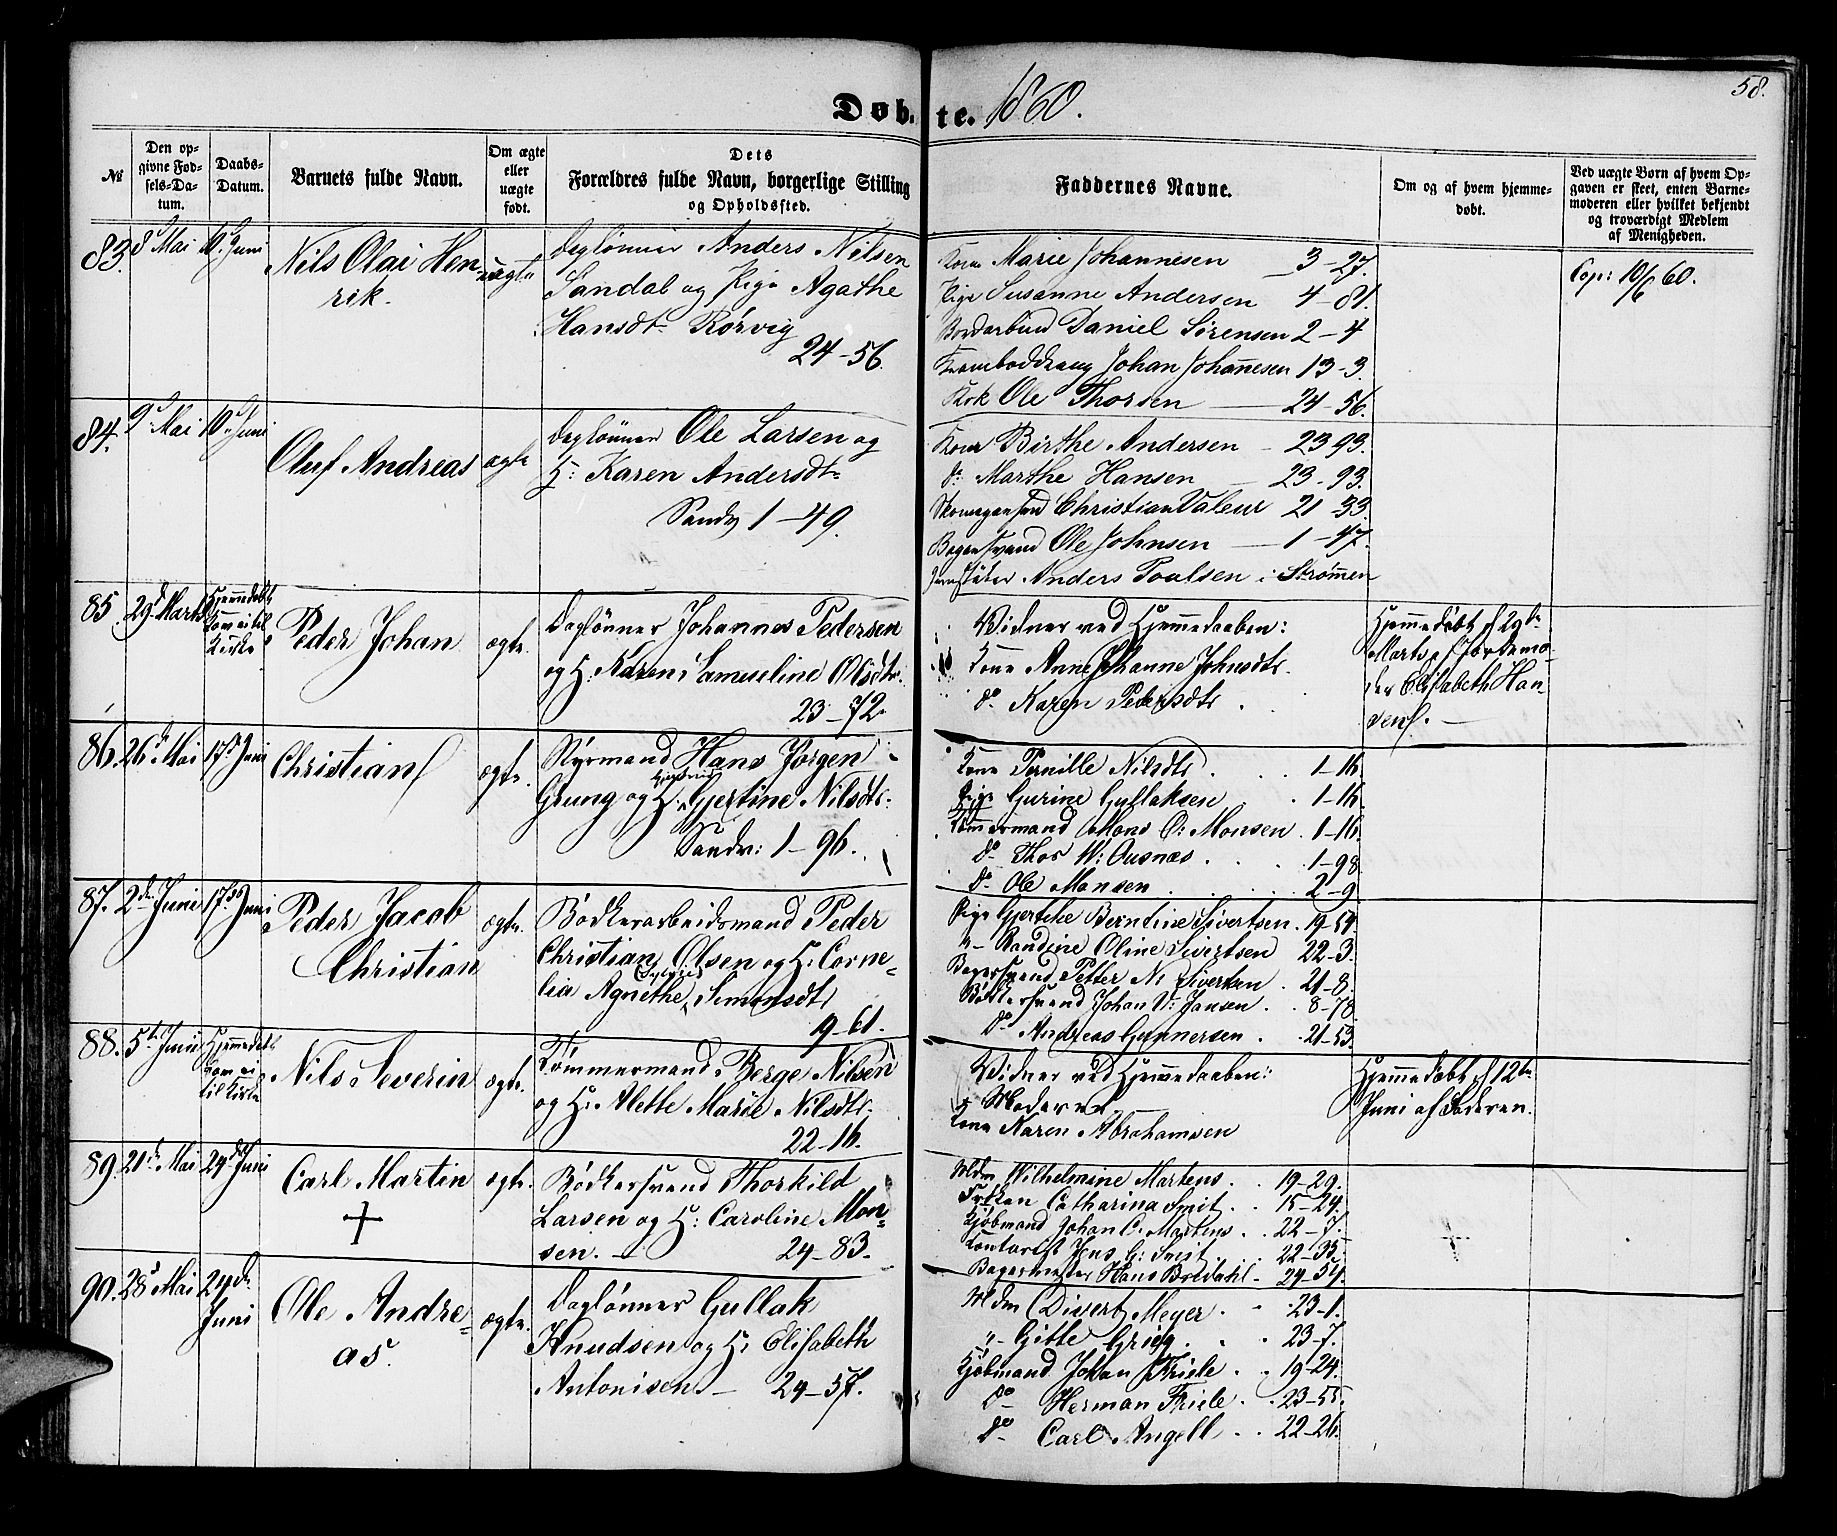 58.
Døb- te. 1860.
№
Den op-
givne Fød-
sels-Da-
tum.
Daabs-
Datum.
Barnets fulde Navn.
Om ægte
eller
uægte
født.
Dets
Forældres fulde Navn, borgerlige Stilling
og Opholdssted.
Faddernes Navne.
Om og af hvem hjemme-
døbt.
Ved uægte Børn af hvem Op-
gaven er skeet, enten Barne-
moderen eller hvilket bekjendt
og troværdigt Medlem
af Menigheden.
83. 8 Mai 10 Juni
Nils Olai Hen-
rik.
uægte
Daglønner Anders Nilsen
Sandal og Pige Agathe
Hansdtr Rørvig
24-56.
Kone Marie Johannesen 3-27.
Pige Susanne Andersen 4-81.
Daniel Sørensen 2-4
Kramboddreng Johan Johannesen 13-3.
Kok Ole Thorsen 24-56.
Cop: 10/6 60.
84. 9 Mai 10 Juni
Oluf Andreas
ægte
Daglønner Ole Larsen og
H: Karen Andersdtr
Sandv 1-49.
Kone Birthe Andersen 23-93.
do Marthe Hansen 23-93.
Christian Valeur 21-33
Bagersvend Ole Johnsen 1-47.
Anders Poulsen i Strømmen
85. 29d Marts
Hjemmedøbt
kom ei til
Kirke
Peder Johan
ægte.
Daglønner Johannes Pedersen
og H. Karen Samueline Olsdtr.
23-72
Vidner ved Hjemmedaaben:
Kone Anne Johanne Johnsdtr.
do Karen Pedersdtr.
Hjemmedøbt d 29de
Marts af Jordemo-
der Elisabeth Han-
sen.
86. 26d Mai 17d Juni
Christian
ægte.
Styrmand Hans Jørgen
Grung og H. Gjertine Nilsdtr.
Sandv: 1-96.
Kone Pernille Nilsdtr. 1-16.
Pige Gurine Gullaksen 1-16.
Tømmermand Mons O: Monsen. 1-16.
do Thor W: Ousnæs. 1-98
do Ole Monsen 2-9
87. 2de Juni 17de Juni
Peder Jacob
Christian
ægte.
Bødkerarbeidsmand Peder
Christian Olsen og H: Corne-
lia Agnethe Simonsdtr
19-61.
Pige Gjertche Berntine Sivertsen. 19-59.
"- Randine Oline Sivertsen 22-3.
Bagersvend Petter N. Sivertsen. 21-8.
Bødkersvend Johan V: Jansen. 8-78
do Andreas Gunnersen. 21-53
88. 5te Juni
Hjemmedøbt
kom ei
til Kirke
Nils Severin
ægte.
Tømmermand Berge Nilsen
og H: Alette Marie Nilsdtr.
22-16.
Vidner ved Hjemmedaaben:
Moderen
Kone Karen Abrahamsen
Hjemmedøbt d 12te
Juni af Faderen.
89. 21de Mai 24de Juni
Carl Martin
ægte.
Bødkersvend Thorkild
Larsen og H: Caroline Mon-
sen. 24-83.
Mdm Wilhelmine Martens. 19-29.
Frøken Catharina Smit. 15-24.
Kjøbmand Johan C. Martens. 22-7.
Kontorist Jens G: Smit. 22-35.
Bagermester Hans Bredahl. 24-54.
90. 28d Mai 24de
Juni
Ole Andre-
as.
ægte.
Daglønner Gullak
Knudsen og H: Elisabeth
Antonisen 24-57.
Mdm Sivert Meyer. 23-1.
"- Gitle Grieg. 23-7.
Kjøbmand Johan Friele. 19-24.
do Herman Friele. 23-55.
do Carl Angell. 22-26.